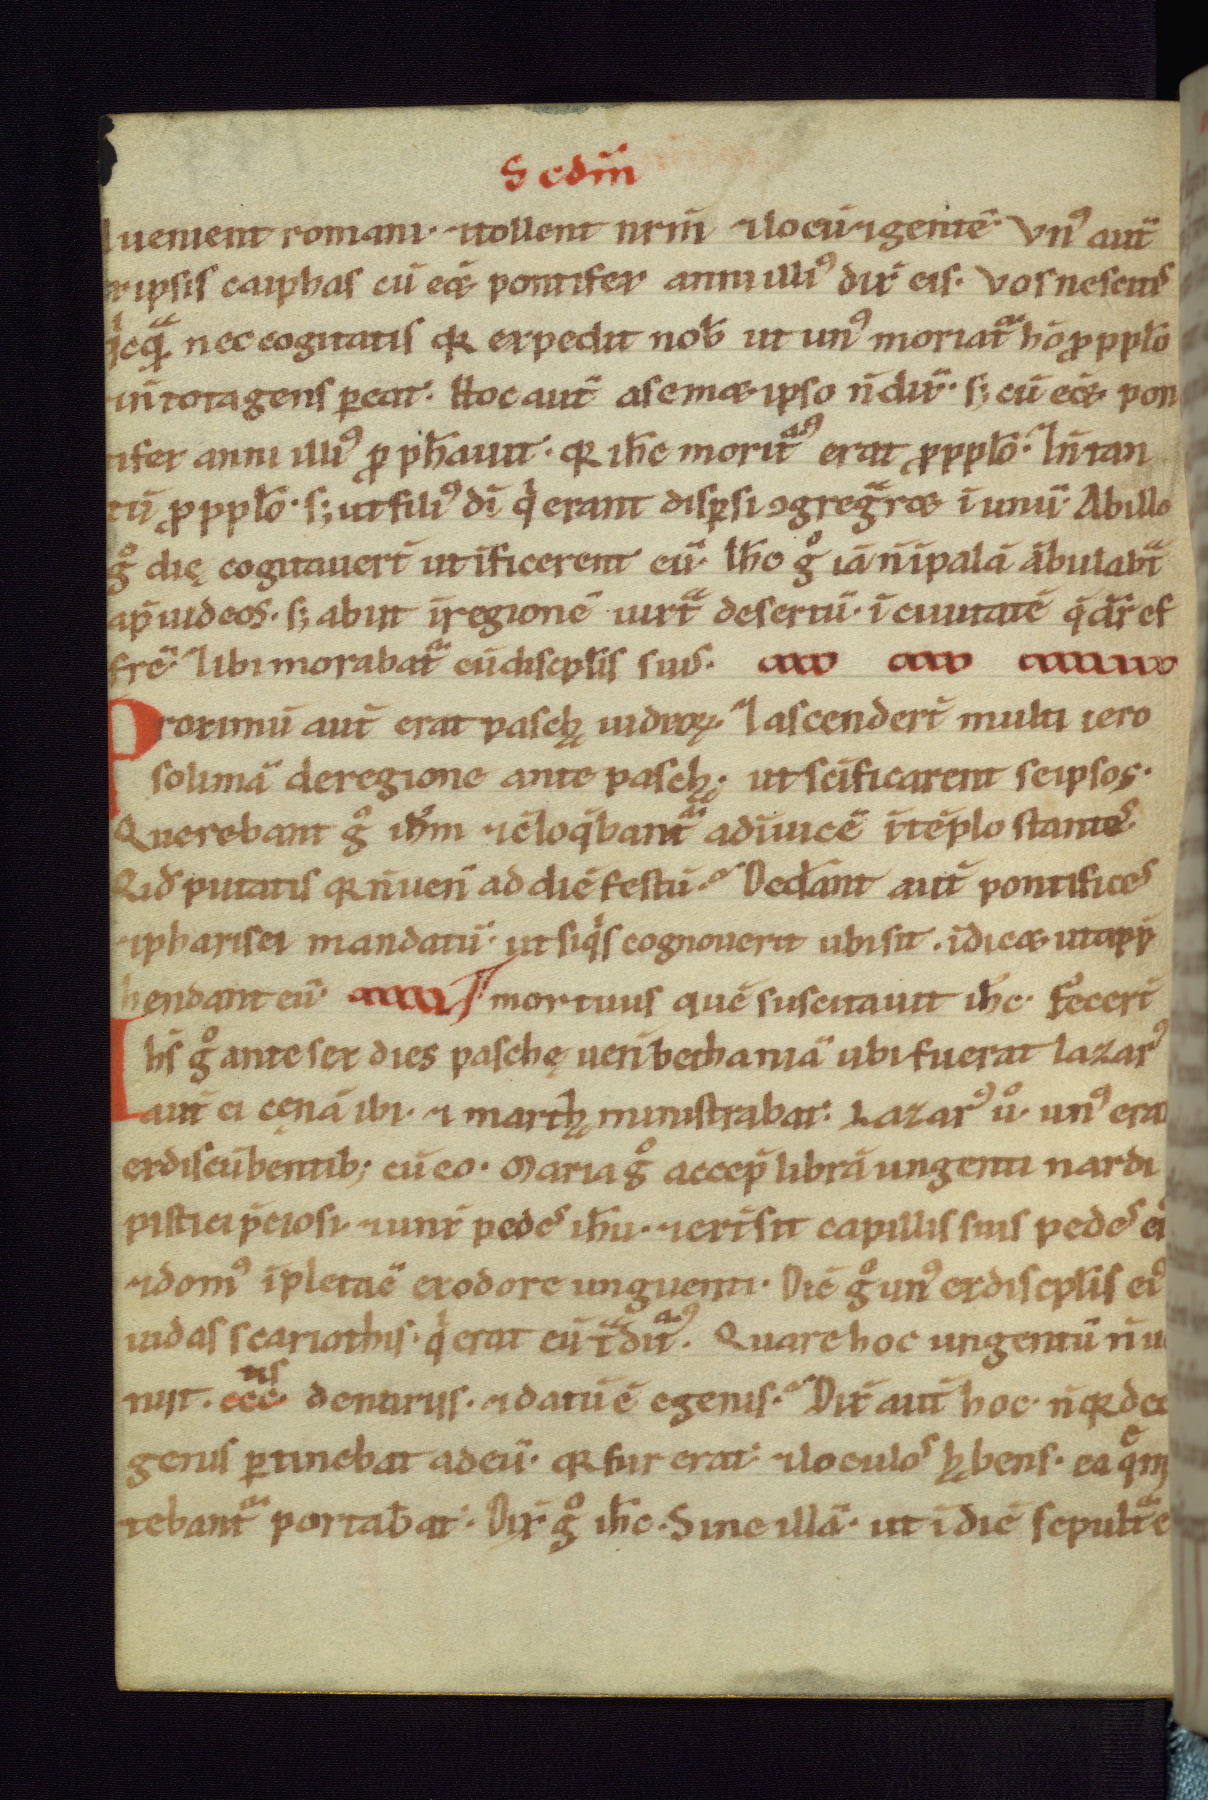 Scdm̄
⁊ uenient romani· ⁊tollent nrm̄ ⁊locū ⁊gentē· Vnꝰ aut̄
ex ipsis caiphas cū eēt pontifex anni illiꝰ dix̄ eis· Vos nescitis
qicq̄ᵃ nec cogitatis qꝛ expedit nob̄ ut unꝰ moriat᷑ hō ꝓ ppl̄o
⁊ n̄ tota gens ꝑeat· Hoc aut̄ a semæ ipso n̄ dix̄· s; cū eēt pon
tifex anni illiꝰ ꝓph̄auit· qꝛ ih̄c moritᵘꝰ erat ꝓ ppl̄o· ⁊ n̄ tan
tū ꝓ ppl̄o· s; ut filiꝰ dī qⁱ erant disꝑsi ꝯgregᵃræ ī unū· Ab illo
gᵒ dię cogitauer̄ ut īficerent eū· Ih̄c gᵒ iā n̄ ī palā ābulabat᷑
ap̄ iudeos· s; abiit ī regionē iuxtᵃ desertū· ī ciuitatē q̄ dr̄ ef
frē· ⁊ ibi morabat᷑ cū discpl̄is suis·
Proximū aut̄ erat paschę iudeoꝝ· ⁊ ascender̄ multi iero
solimā de regione ante paschę· ut scīficarent se ipsos·
Querebant gᵒ ih̄m ⁊ cōloq̄bant᷑ ad īuicē ī tēplo stantes·
Qid putatis qꝛ n̄ uen̄ ad diē festū· Ded̄ant aut̄ pontifices
⁊ pharisei mandatū· ut siqⁱs cognouerit ubi sit· īdicæ ut app̄
hendant eū· mortuus quē suscitauit ih̄c· Fecer̄
Ih̄s gᵒ ante sex dies paschę uen̄ bethaniā ubi fuerat lazarꝰ
aut̄ ei cęnā ibi· ⁊ marthę ministrabat· Lazarꝰ uᵒ· unꝰ erat
ex discūbentib; cū eo· Maria gᵒ accep̄ librā ungenti nardi
pistici p̄ciosi· ⁊ unx̄ pedes ih̄u· ⁊ ext̄sit capillis suis pedes eiꝰ
⁊ domꝰ īpleta ē ex odore unguenti· Dic̄ gᵒ unꝰ ex discpl̄is eiꝰ
iudas scariothis· qⁱ erat eū tᵃditᵘꝰ· Quare hoc ungentū n̄ ue
niit· cccᵗⁱˢ denariis· ⁊ datū ē egenis· Dix̄ aut̄ hoc· n̄ qꝛ de e
genis ꝑtinebat ad eū· qꝛ fur erat· ⁊ loculos hębens· ea quę m̄
tebant᷑ portabat· Dix̄ gᵒ ih̄c· Sine illā· ut ī diē sepultᵘe